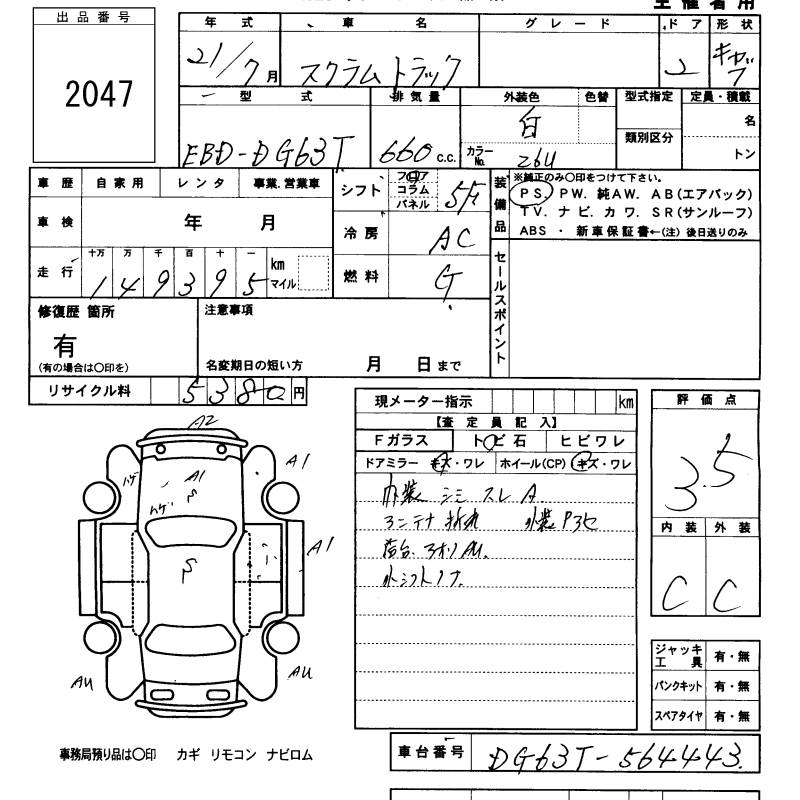 主催者用
出品番号
2047
年式 車名 グレード ドア 形状
21/7月 スクラムトラック 2 キャブ
型式 排気量 外装色 色替 型式指定 定員・積載
EBD-DG63T 660 c.c. 白 カラーNo. 26U 類別区分 名 トン
車歴 自家用 レンタ 事業.営業車
車検 年 月
走行 十万 万 千 百 十 一
149395 km マイル
シフト フロア コラム パネル 5F
冷房 AC
燃料 G
装備品
※純正のみ〇印をつけて下さい。
PS. PW. 純AW. AB(エアバック)
TV. ナビ. カワ. SR(サンルーフ)
ABS ・ 新車保証書←(注) 後日送りのみ
セールスポイント
修復歴 箇所
有
(有の場合は〇印を)
注意事項
名変期日の短い方 月 日まで
リサイクル料 5380 円
現メーター指示 km
【査定員記入】
Fガラス トビ石 ヒビワレ
ドアミラー キズ・ワレ ホイール(CP) キズ・ワレ
内装 シミ スレ A
アンテナ 折れ
荷台
評価点
3.5
内装 外装
C C
A2
A1
ハゲ
A1
ハゲ
S
A1
S
AU
AU
ジャッキ工具 有・無
パンクキット 有・無
スペアタイヤ 有・無
事務局預り品は〇印 カギ リモコン ナビロム
車台番号 DG63T-564443